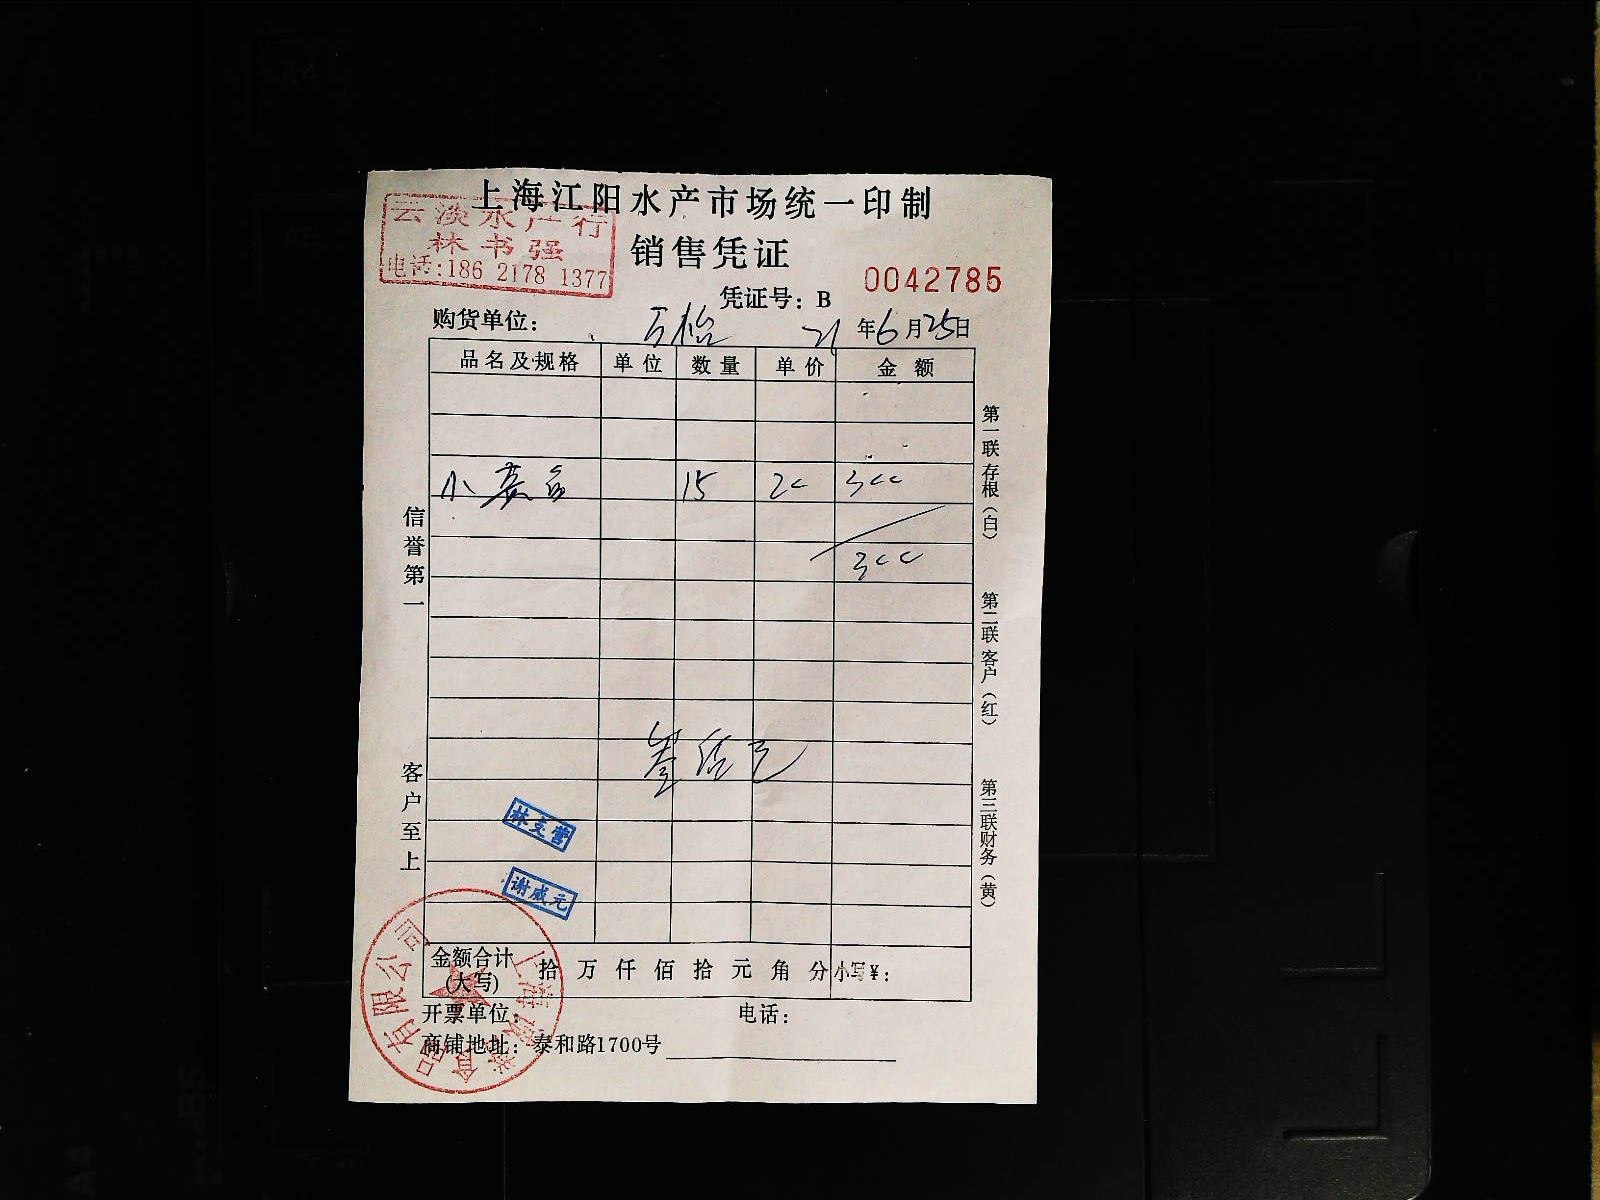 上海江阳水产市场统一印制
云淡水产行
林书强
电话:186 2178 1377
销售凭证
0042785
凭证号：B
购货单位： 万怡 21年6月25日
品名及规格 单位 数量 单价 金额
小黄鱼 15 20 300
300
叁佰元
信誉第一
客户至上
第一联存根（白）
第二联客户（红）
第三联财务（黄）
谢咸元
金额合计(大写) 拾 万 仟 佰 拾 元 角 分 小写¥：
开票单位： 电话：
商铺地址：泰和路1700号
食品有限公司